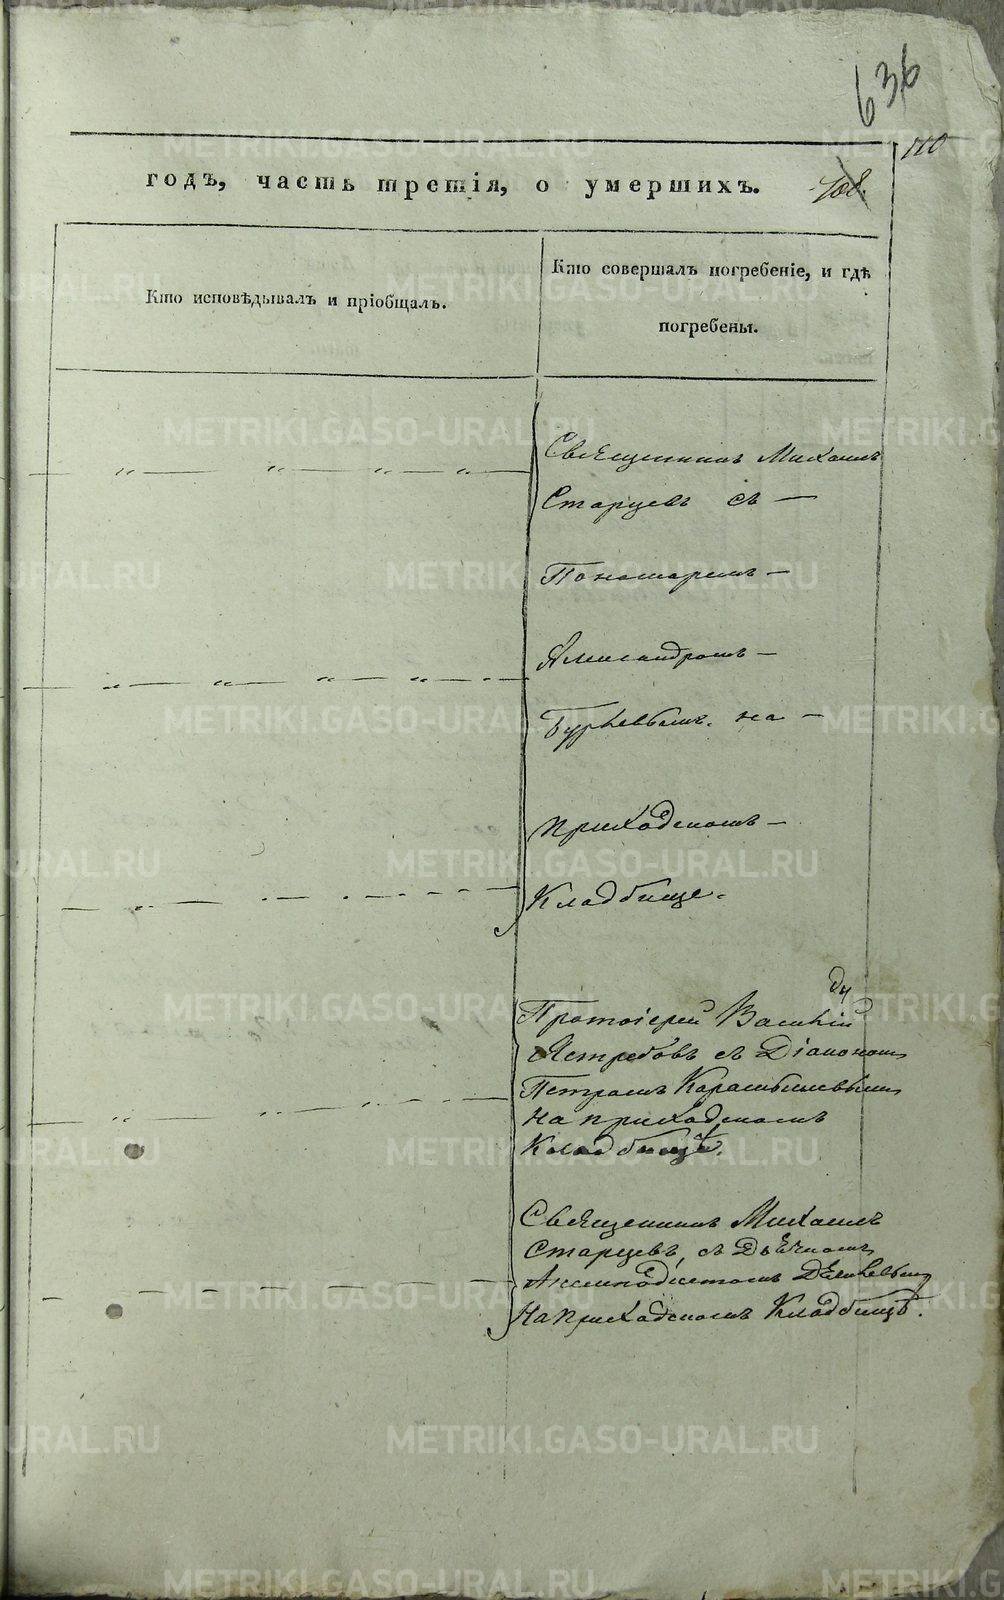 636
110
108.
годъ, часть третія, о умершихъ.
Кто исповѣдывалъ и пріобщалъ.
Кто совершалъ погребеніе, и гдѣ
погребены.
Священникъ Михаилъ
Старцевъ съ —
Пономаремъ —
Александромъ —
на —
приходскомъ —
Кладбище.
Протоіерей
Ястребовъ съ Діакономъ
Петромъ
на приходскомъ
Кладбищѣ.
Священникъ Михаилъ
Старцевъ, съ Дьячкомъ
На приходскомъ Кладбищѣ.
METRIKI.GASO-URAL.RU